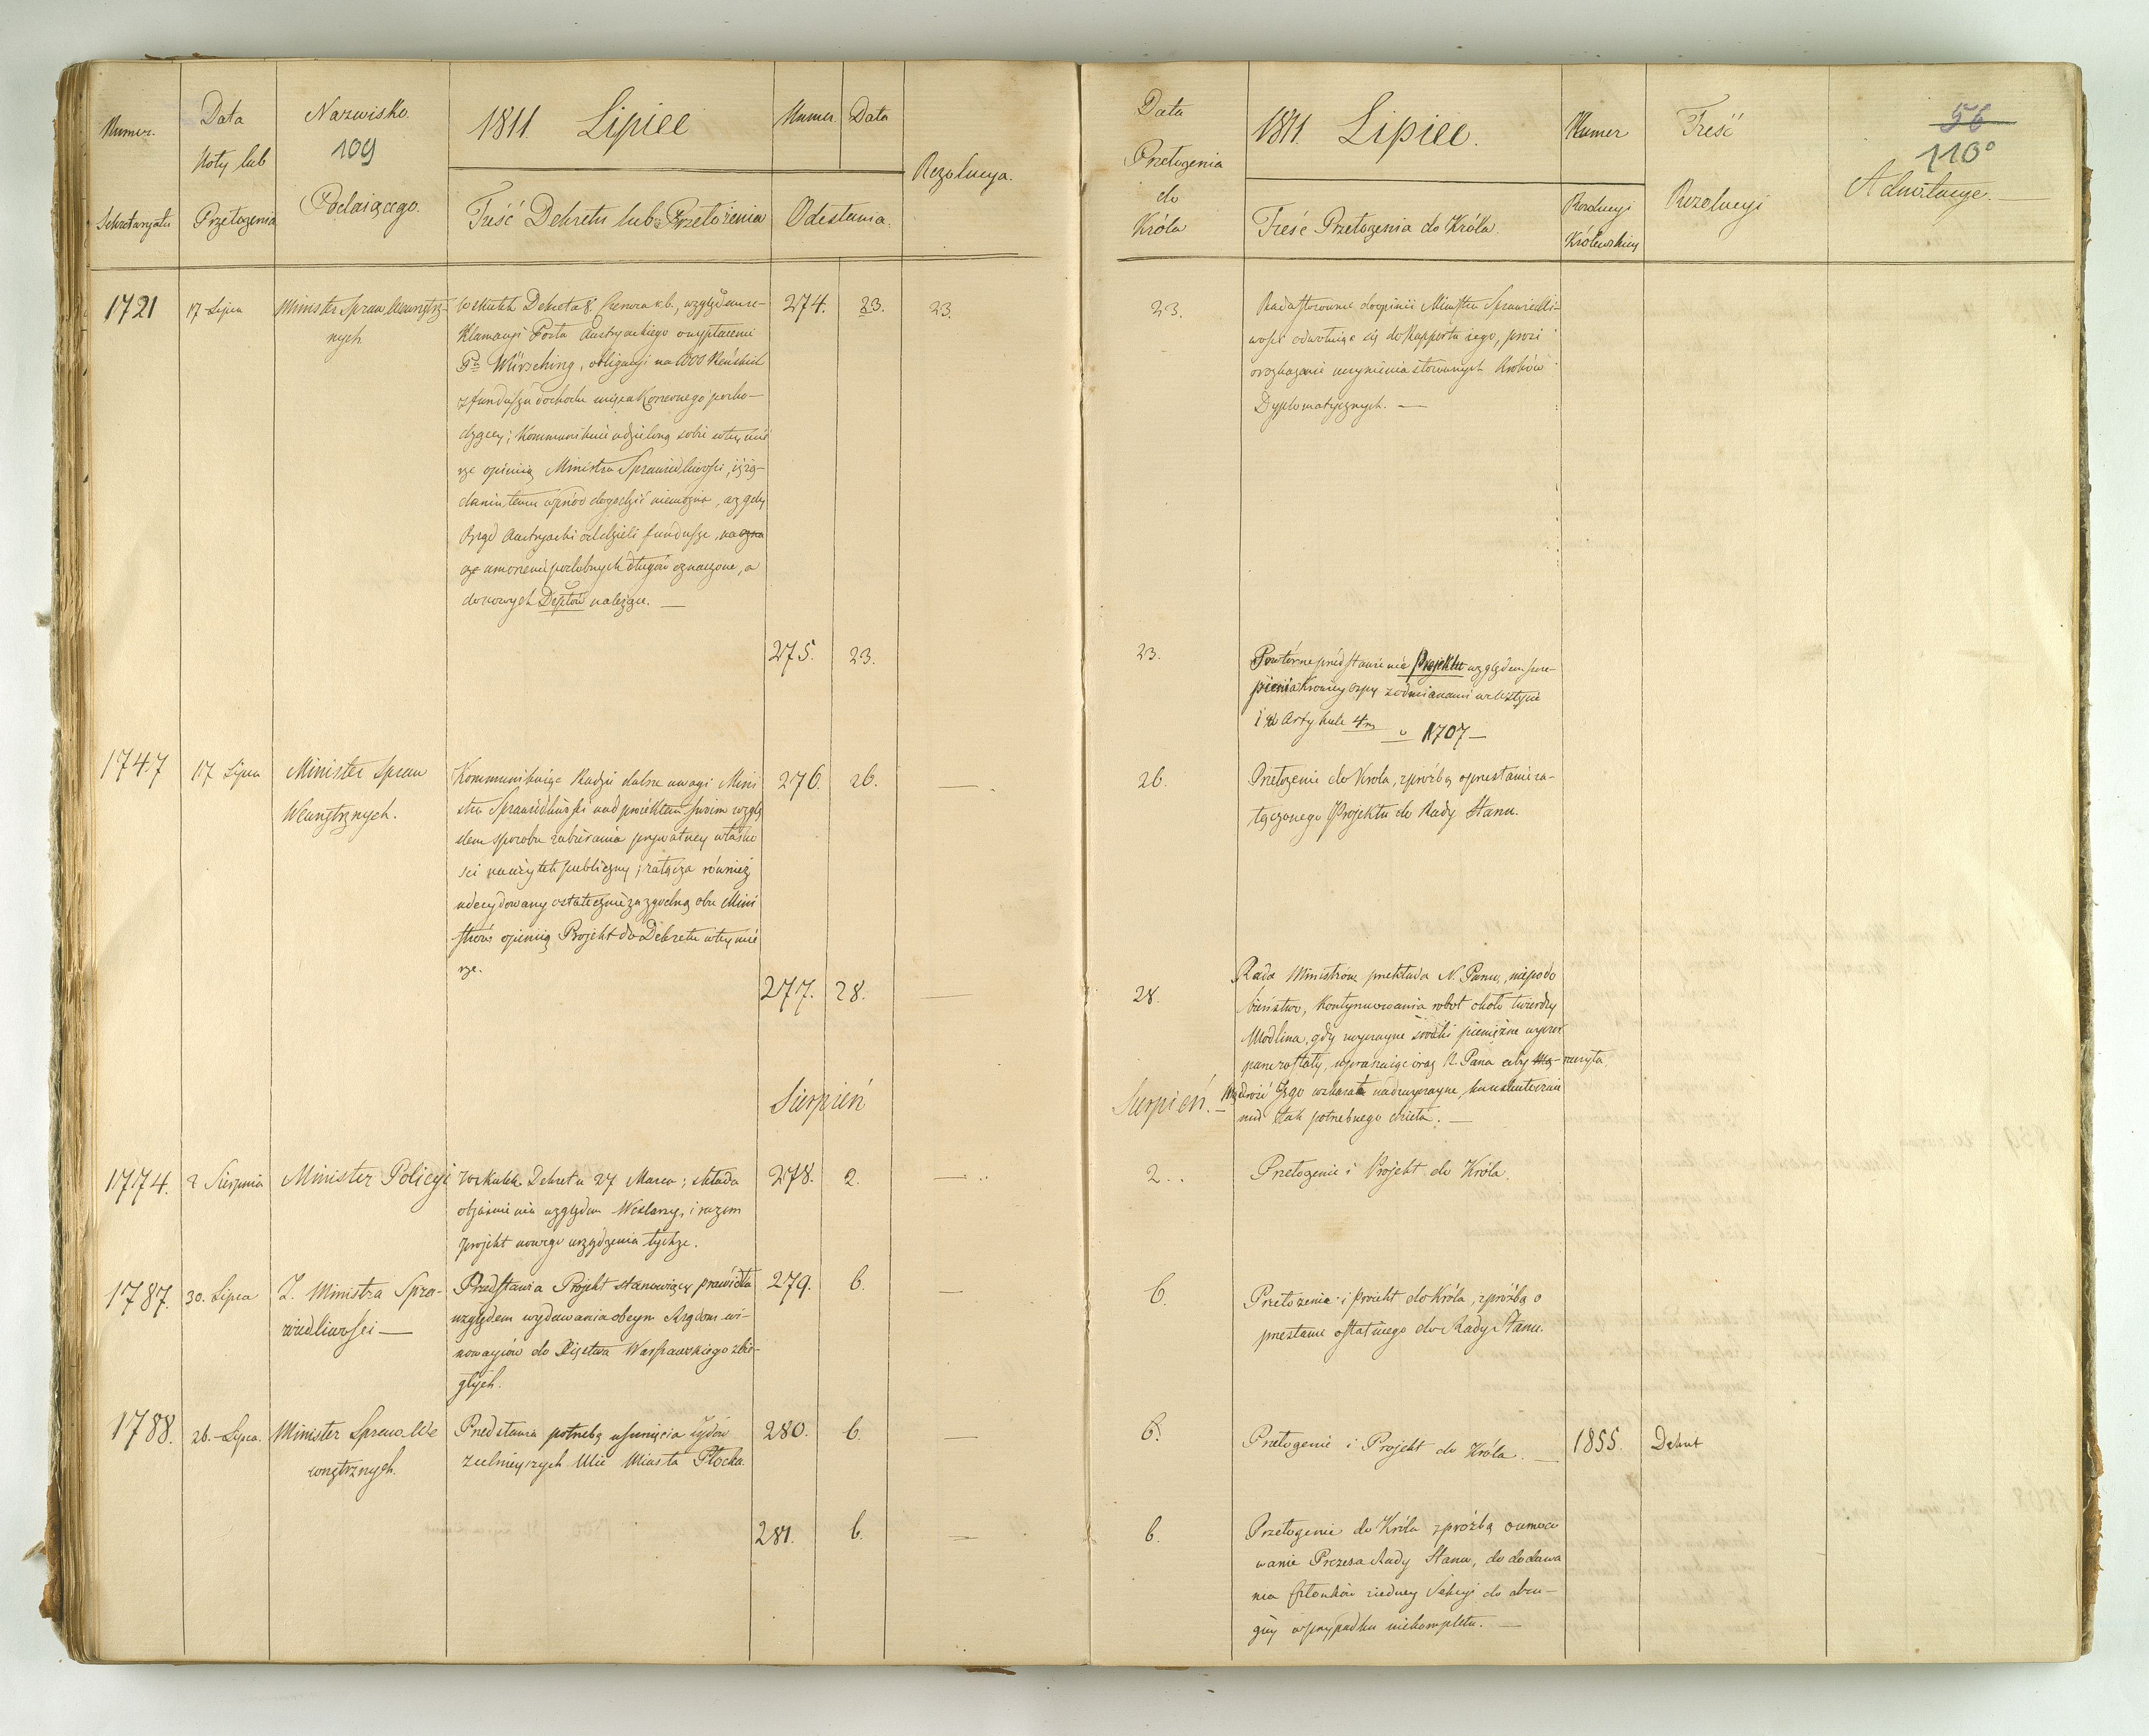 Numer.
Sekretaryatu
Data
Noty lub
Przełożenia
Nazwisko.
109
Podaiącego.
1811. Lipiec
Treść Dekretu lub Przełożenia
Numer Data
Odesłania.
Rezolucya.
1721
17 Lipca
Minister Spraw Wewnętrz-
nych
W skutek Dekretu 8. Czerwca r. b., względem re-
klamacyi Posła Austryackiego o wypłacenie
Pa Würsching, obligacyi na 1000 Reńskich
z funduszu dochodu mięsa Koszernego pocho-
dzącey; Kommunikuie udzieloną sobie w tey mie
rze opinią Ministra Sprawiedliwości, iż żą-
daniu temu wprzód dogodzić niemożna, aż gdy
Rząd Austryacki oddzieli fundusze, na
umorzenie podobnych długów oznaczone, a
do nowych Deptów należące. —
274. 23. 23.
275. 23.
1747
17 Lipca
Minister Spraw
Wewnętrznych.
Kommunikuiąc Radzie dalsze uwagi Mini
stra Sprawiedliwości nad proiektem swoim wzglę
dem sposobu zabierania prywatney własno
ści na użytek publiczny; załącza również
udecydowany ostatecznie za zgodną obu Mini
strów opinią Projekt do Dekretu w tey mie
rze.
276. 26. —
277. 28. —
Sierpień
1774.
2 Sierpnia
Minister Policyi
W skutek Dekretu 27 Marca; składa
objaśnienia względem Weteranów, i razem
projekt nowego urządzenia tychże.
278. 2. —
1787.
30. Lipca
Z. Ministra Spra-
wiedliwości —
Przedstawia Projekt stanowiący prawidła
względem wydawania obcym Rządom wi-
nowayców do Xięstwa Warszawskiego zbie-
głych.
279. 6. —
1788.
26. Lipca.
Minister Spraw We
wnętrznych.
Przedstawia potrzebę usunięcia Żydów
z celnieyszych Ulic Miasta Płocka.
280. 6. —
281. 6. —
Data
Przełożenia
do
Króla
1811. Lipiec.
Treść Przełożenia do Króla.
Numer
Rezolucyi
Królewskiey
Treść
Rezolucyi
56
110
23.
Rada stosownie do opinii Ministra Sprawiedli-
wości odwołuiąc się do Rapportu iego, prosi
o rozkazanie uczynienia stosownych Kroków
Dyplomatycznych. —
23.
Powtórne przedstawienie Projektu względem szcze-
pienia Krowiey Ospy z odmianami w Wstępie
i w Artykule 4m
1707 —
26.
Przełożenie do Króla, z prożbą o przesłanie za-
łączonego Projektu do Rady Stanu.
28.
Rada Ministrów przekłada N. Panu, niepodo
bieństwo, kontynuowania robot około twierdzy
Modlina, gdy zwyczayne środki pieniężne wyczer
pane zostały, upraszaiąc oraz N. Pana aby raczyła
Mądrość Jego wskazać nadzwyczayne, ku uskutecznie
niu tak potrzebnego dzieła. —
Sierpień. —
2.
Przełożenie i Projekt do Króla.
6.
Przełożenie i Proiekt do Króla, z prożbą o
przesłanie ostatniego do Rady Stanu.
6.
Przełożenie i Projekt do Króla. —
1855. Dekret
6.
Przełożenie do Króla z prożbą o umoco
wanie Prezesa Rady Stanu, do dodawa
nia Członków z iedney Sekcyi do dru-
giey w przypadku niekompletu. —